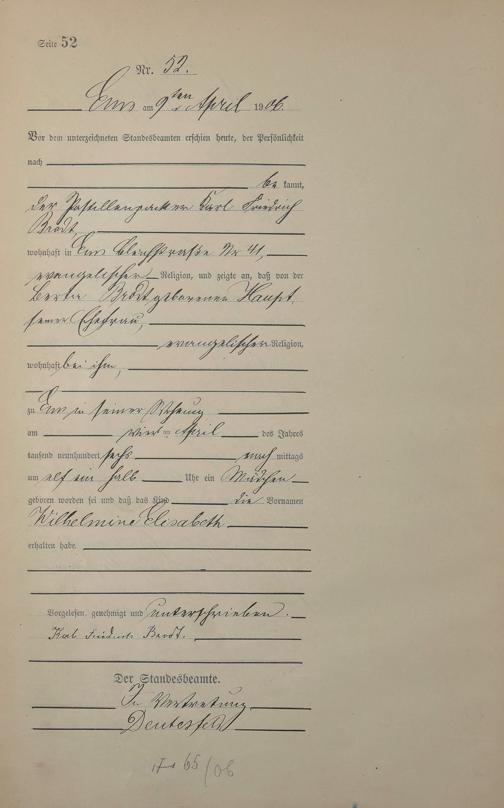 Seite 52
Nr. 52.
Ems am 9ten April 1906.
Vor dem unterzeichneten Standesbeamten erschien heute, der Persönlichkeit
nach
be kannt,
der Pastillenpacker Karl Friedrich
Brodt,
wohnhaft in Ems Nr 41,
evangelischer Religion, und zeigte an, daß von der
Berta Brodt geborenen Haupt,
seiner Ehefrau,
evangelischer Religion,
wohnhaft bei ihm,
zu Ems in seiner Wohnung
am April des Jahres
tausend neunhundert sechs nach mittags
um elf ein halb Uhr ein Mädchen
geboren worden sei und daß das Kind die Vornamen
Wilhelmine Elisabeth
erhalten habe.
Vorgelesen, genehmigt und unterschrieben.
Karl Friedrich Brodt.
Der Standesbeamte.
In Vertretung
65/06